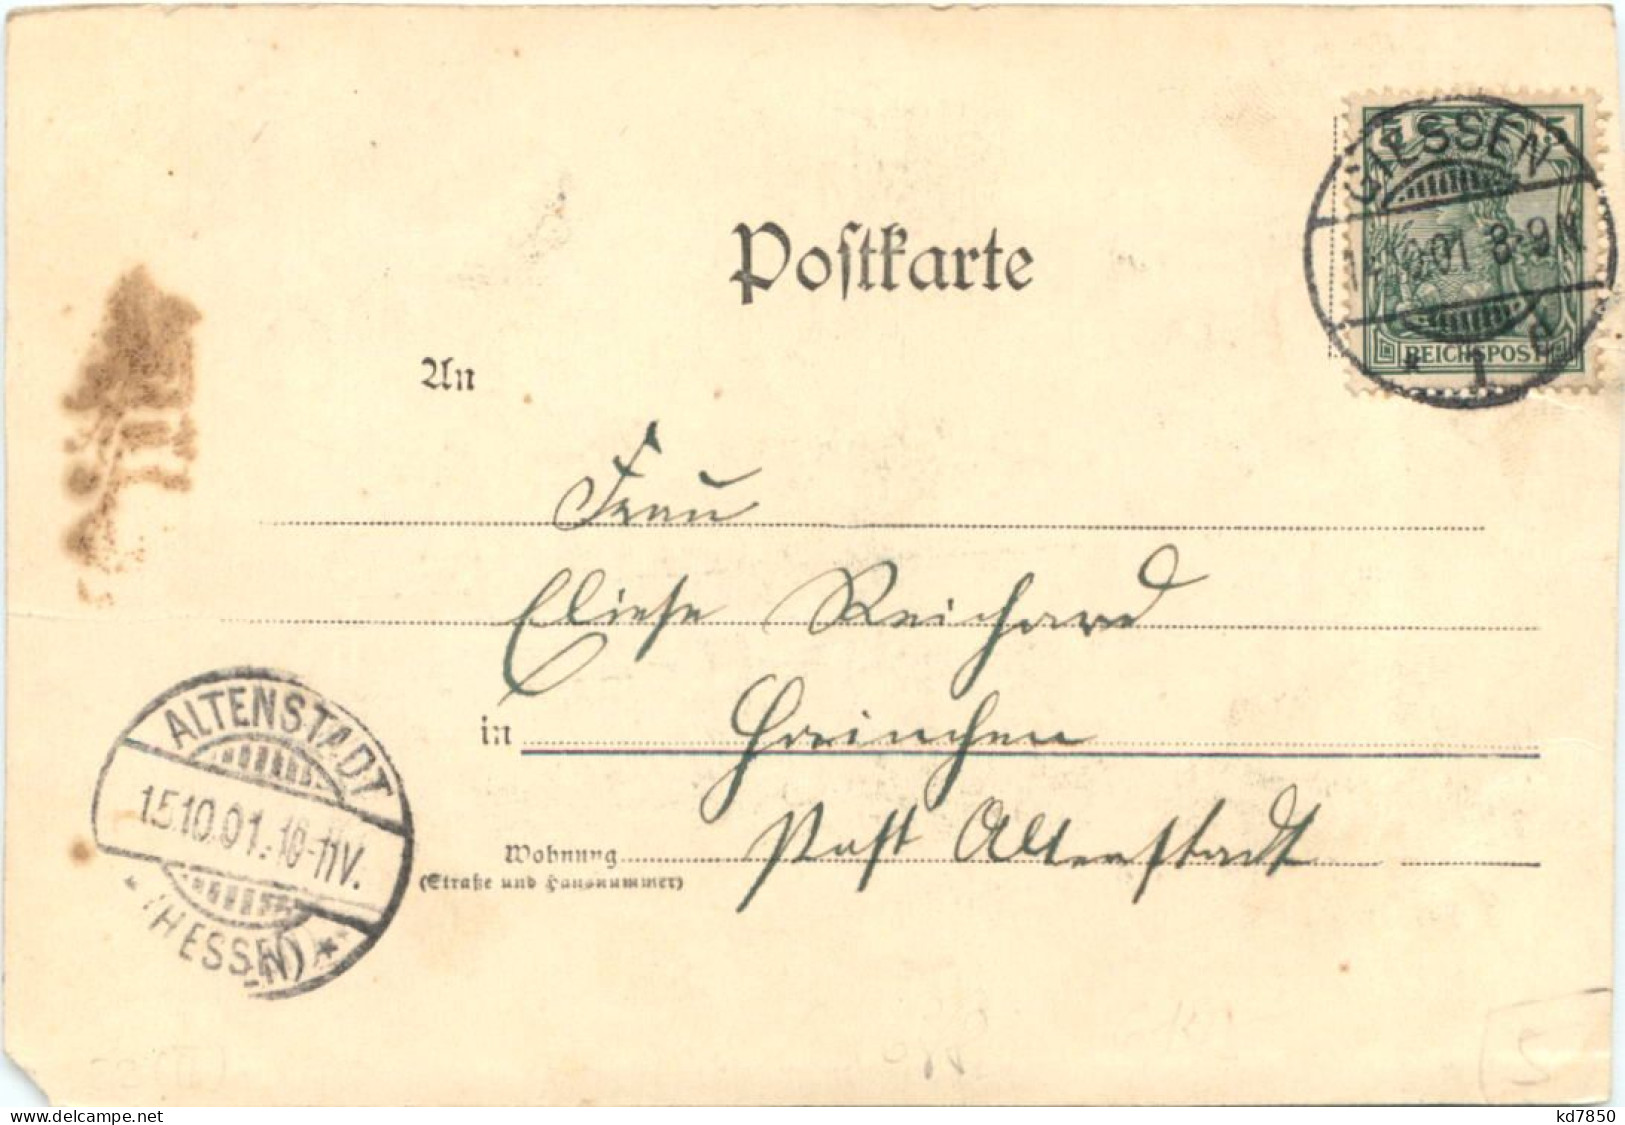 5 5
GIESSEN
.10.01 8-9N
* 1 d
REICHSPOST
Postkarte
An
Frau
Eliese Reichard
in Hainchen
Post Altenstadt
Wohnung
(Straße und Hausnummer)
ALTENSTADT
15.10.01. 10-11V.
* (HESSEN) *
www.delcampe.net
kd7850